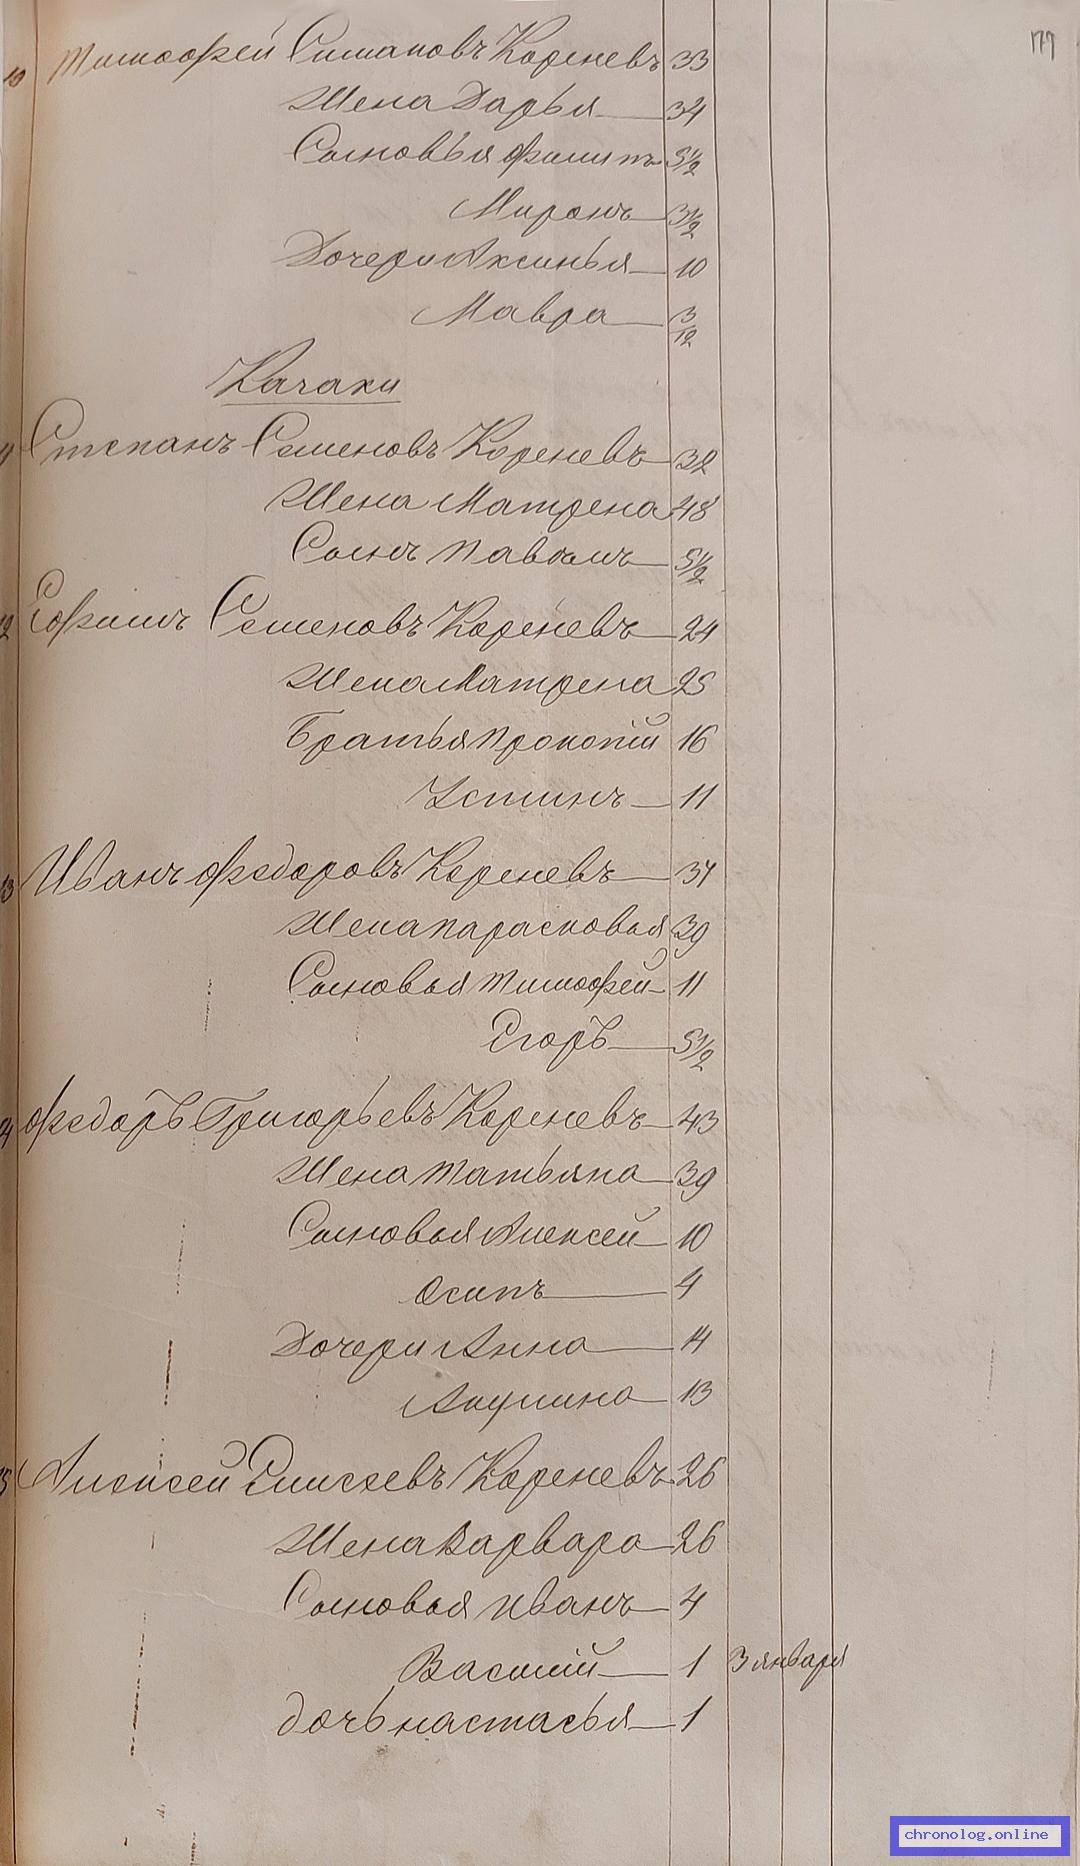 179
10 Тимофей Симановъ Кореневъ 33
Жена Дарья 34
Сыновья Филипъ 5 1/2
Миронъ 3 1/2
Дочери Аксинья 10
Мавра 3/12
Качаки
11 Степанъ Семеновъ Кореневъ 32
Жена Матрена 48
Сынъ Павелъ 5 1/2
12 Ефимъ Семеновъ Кореневъ 24
Жена Матрена 25
Братья Прокопій 16
Устинъ 11
13 Иванъ Федоровъ Кореневъ 37
Жена Парасковья 39
Сыновья Тимофей 11
Егоръ 5 1/2
14 Федоръ Григорьевъ Кореневъ 43
Жена Татьяна 39
Сыновья Алексей 10
Осипъ 4
Дочери Анна 14
Акулина 13
15 Алексей Елисеевъ Кореневъ 26
Жена Варвара 26
Сыновья Иванъ 4
Василій 1 3 января
дочь настасья 1
chronolog.online